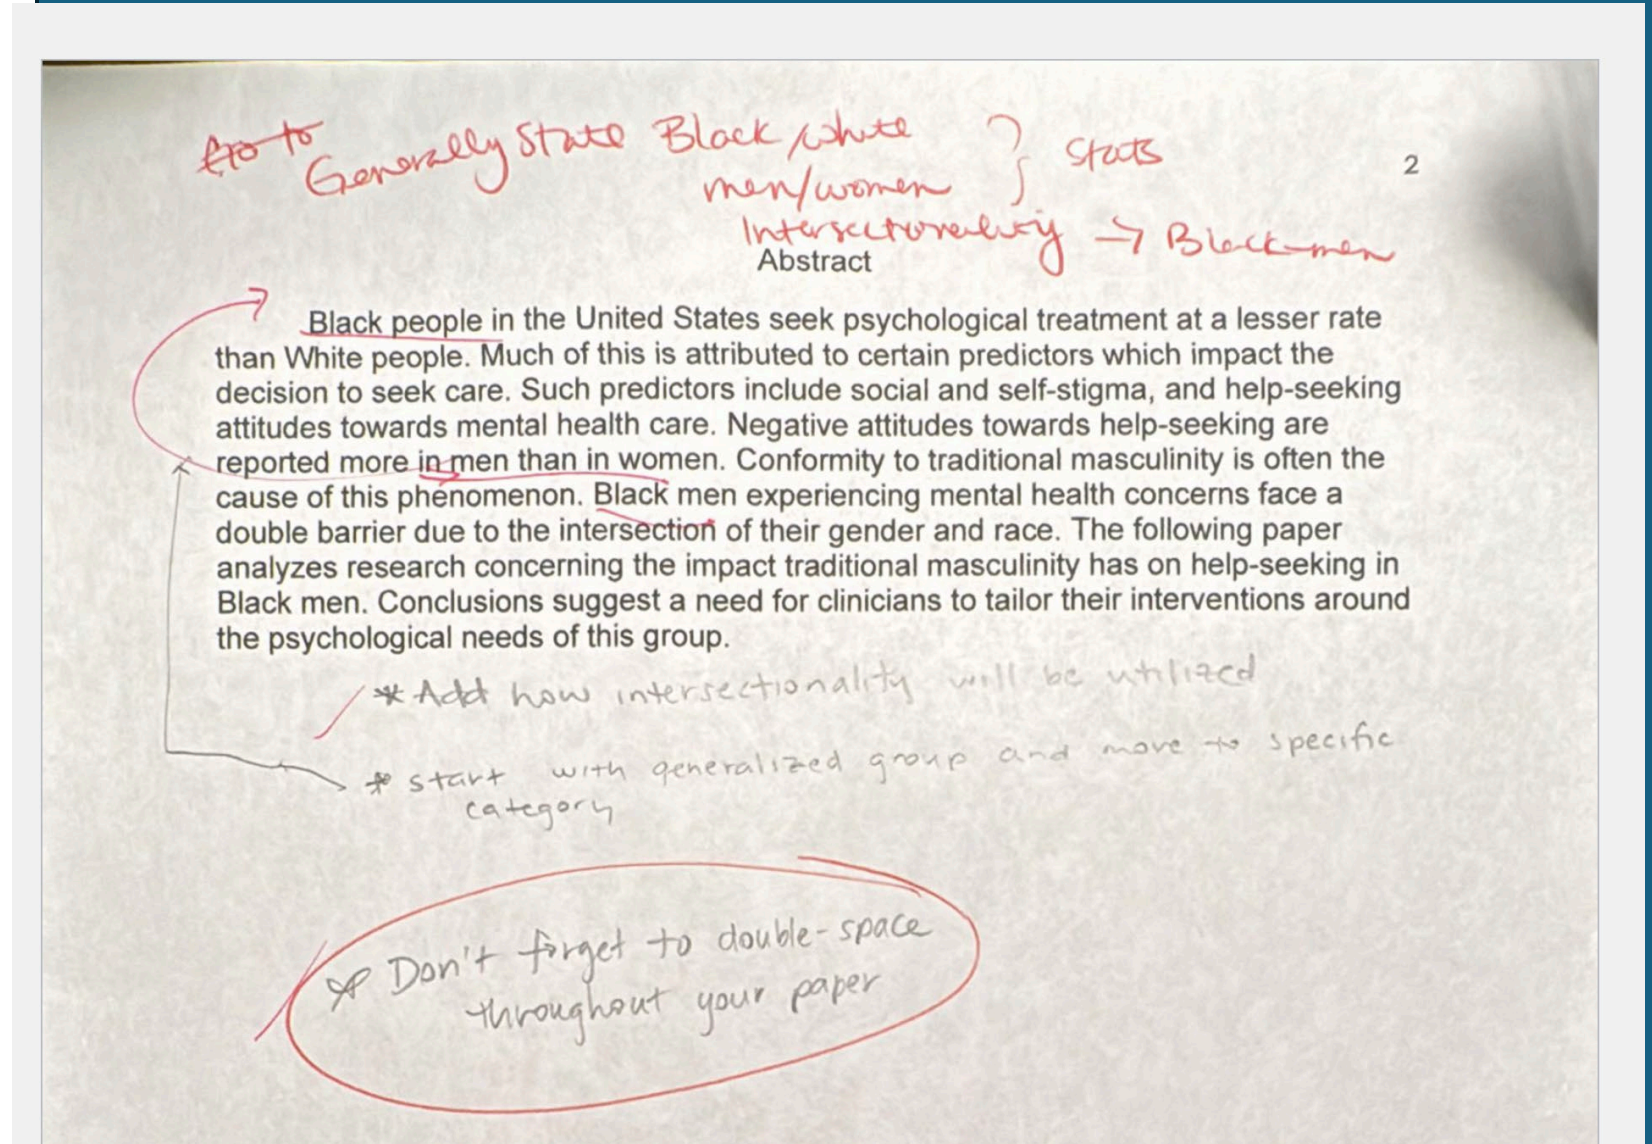 Go to
Generally State Black/white
men/women
Stats
2
Intersectionality → Black men
Abstract
Black people in the United States seek psychological treatment at a lesser rate
than White people. Much of this is attributed to certain predictors which impact the
decision to seek care. Such predictors include social and self-stigma, and help-seeking
attitudes towards mental health care. Negative attitudes towards help-seeking are
reported more in men than in women. Conformity to traditional masculinity is often the
cause of this phenomenon. Black men experiencing mental health concerns face a
double barrier due to the intersection of their gender and race. The following paper
analyzes research concerning the impact traditional masculinity has on help-seeking in
Black men. Conclusions suggest a need for clinicians to tailor their interventions around
the psychological needs of this group.
* Add how intersectionality will be utilized
* start with generalized group and move to specific
category
* Don't forget to double-space
throughout your paper